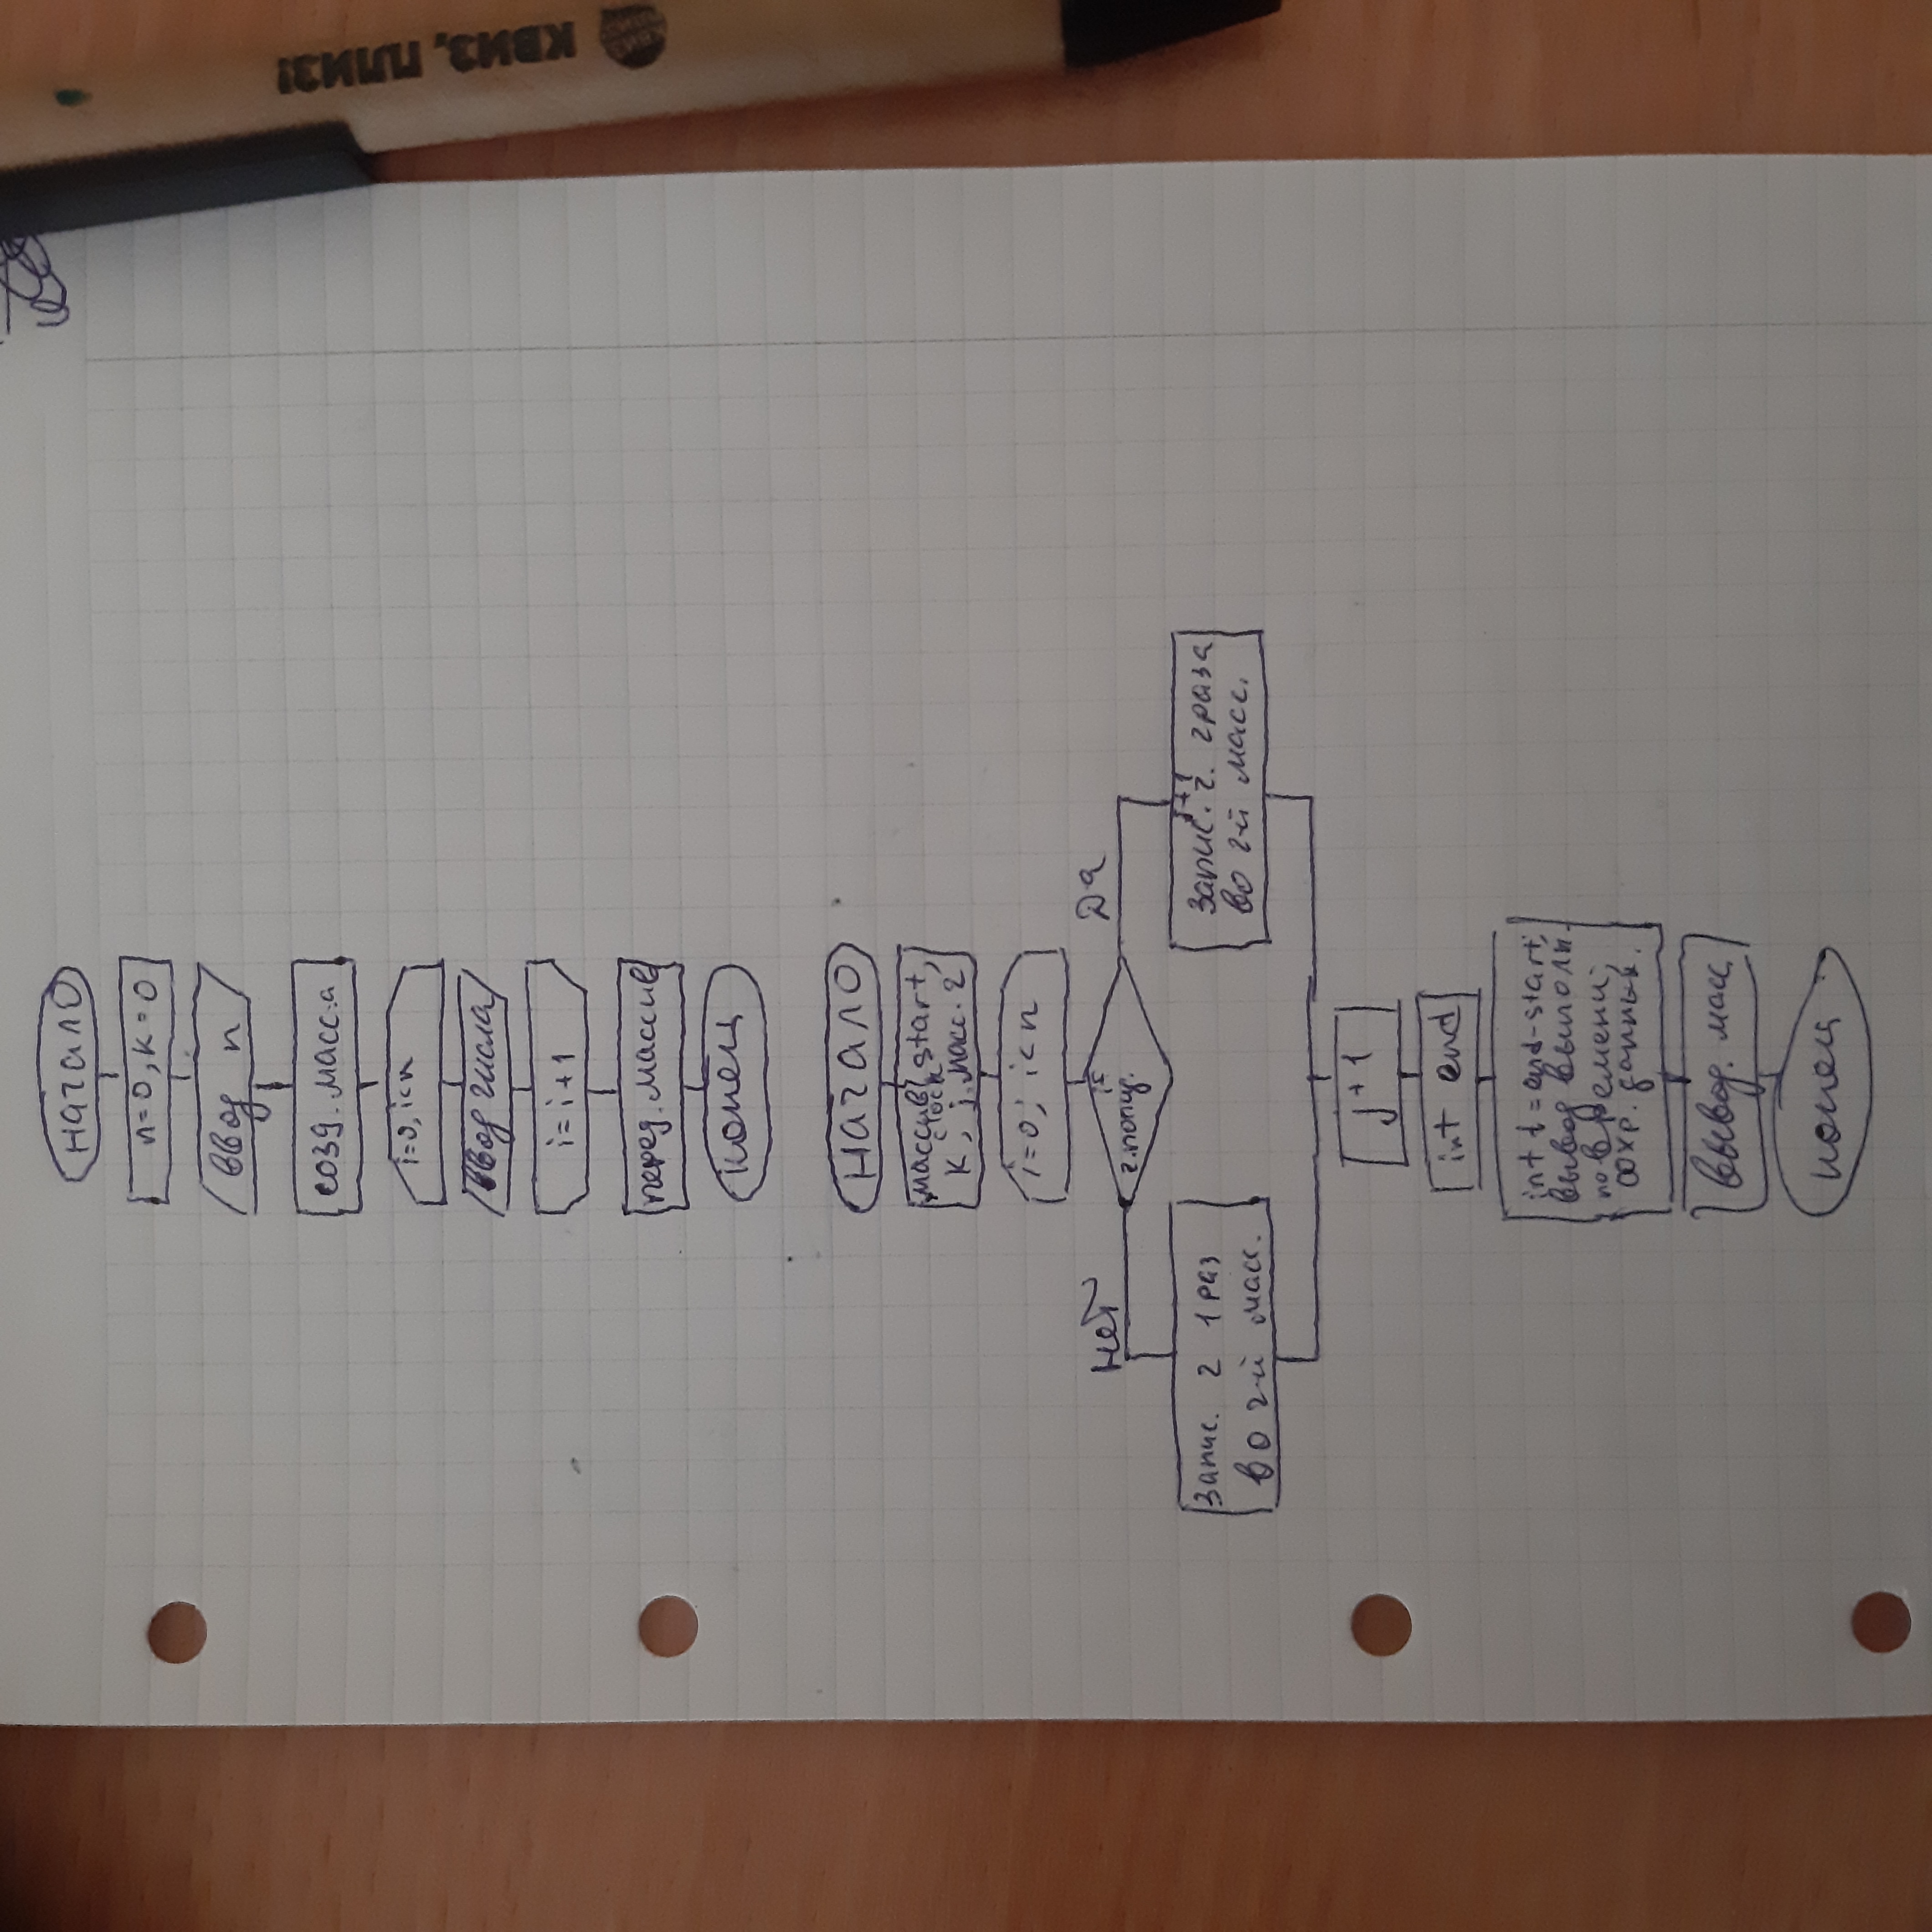 начало
n=0, k=0
ввод n
созд. масс.а
i=0, i<n
ввод числа
i=i+1
перед. массив
конец
начало
массив, start,
clock
k, j, масс. 2
i=0; i<n
нет
if
Да
ч. полуд.
Запис. ч 1 раз
во 2-й масс.
j+1
Запис. ч. 2 раза
во 2-й масс.
j+1
int end
int t = end-start;
вывод выполн.
по времени;
сохр. данных.
вывод. масс
конец
КВИЗ, ПЛИЗ!